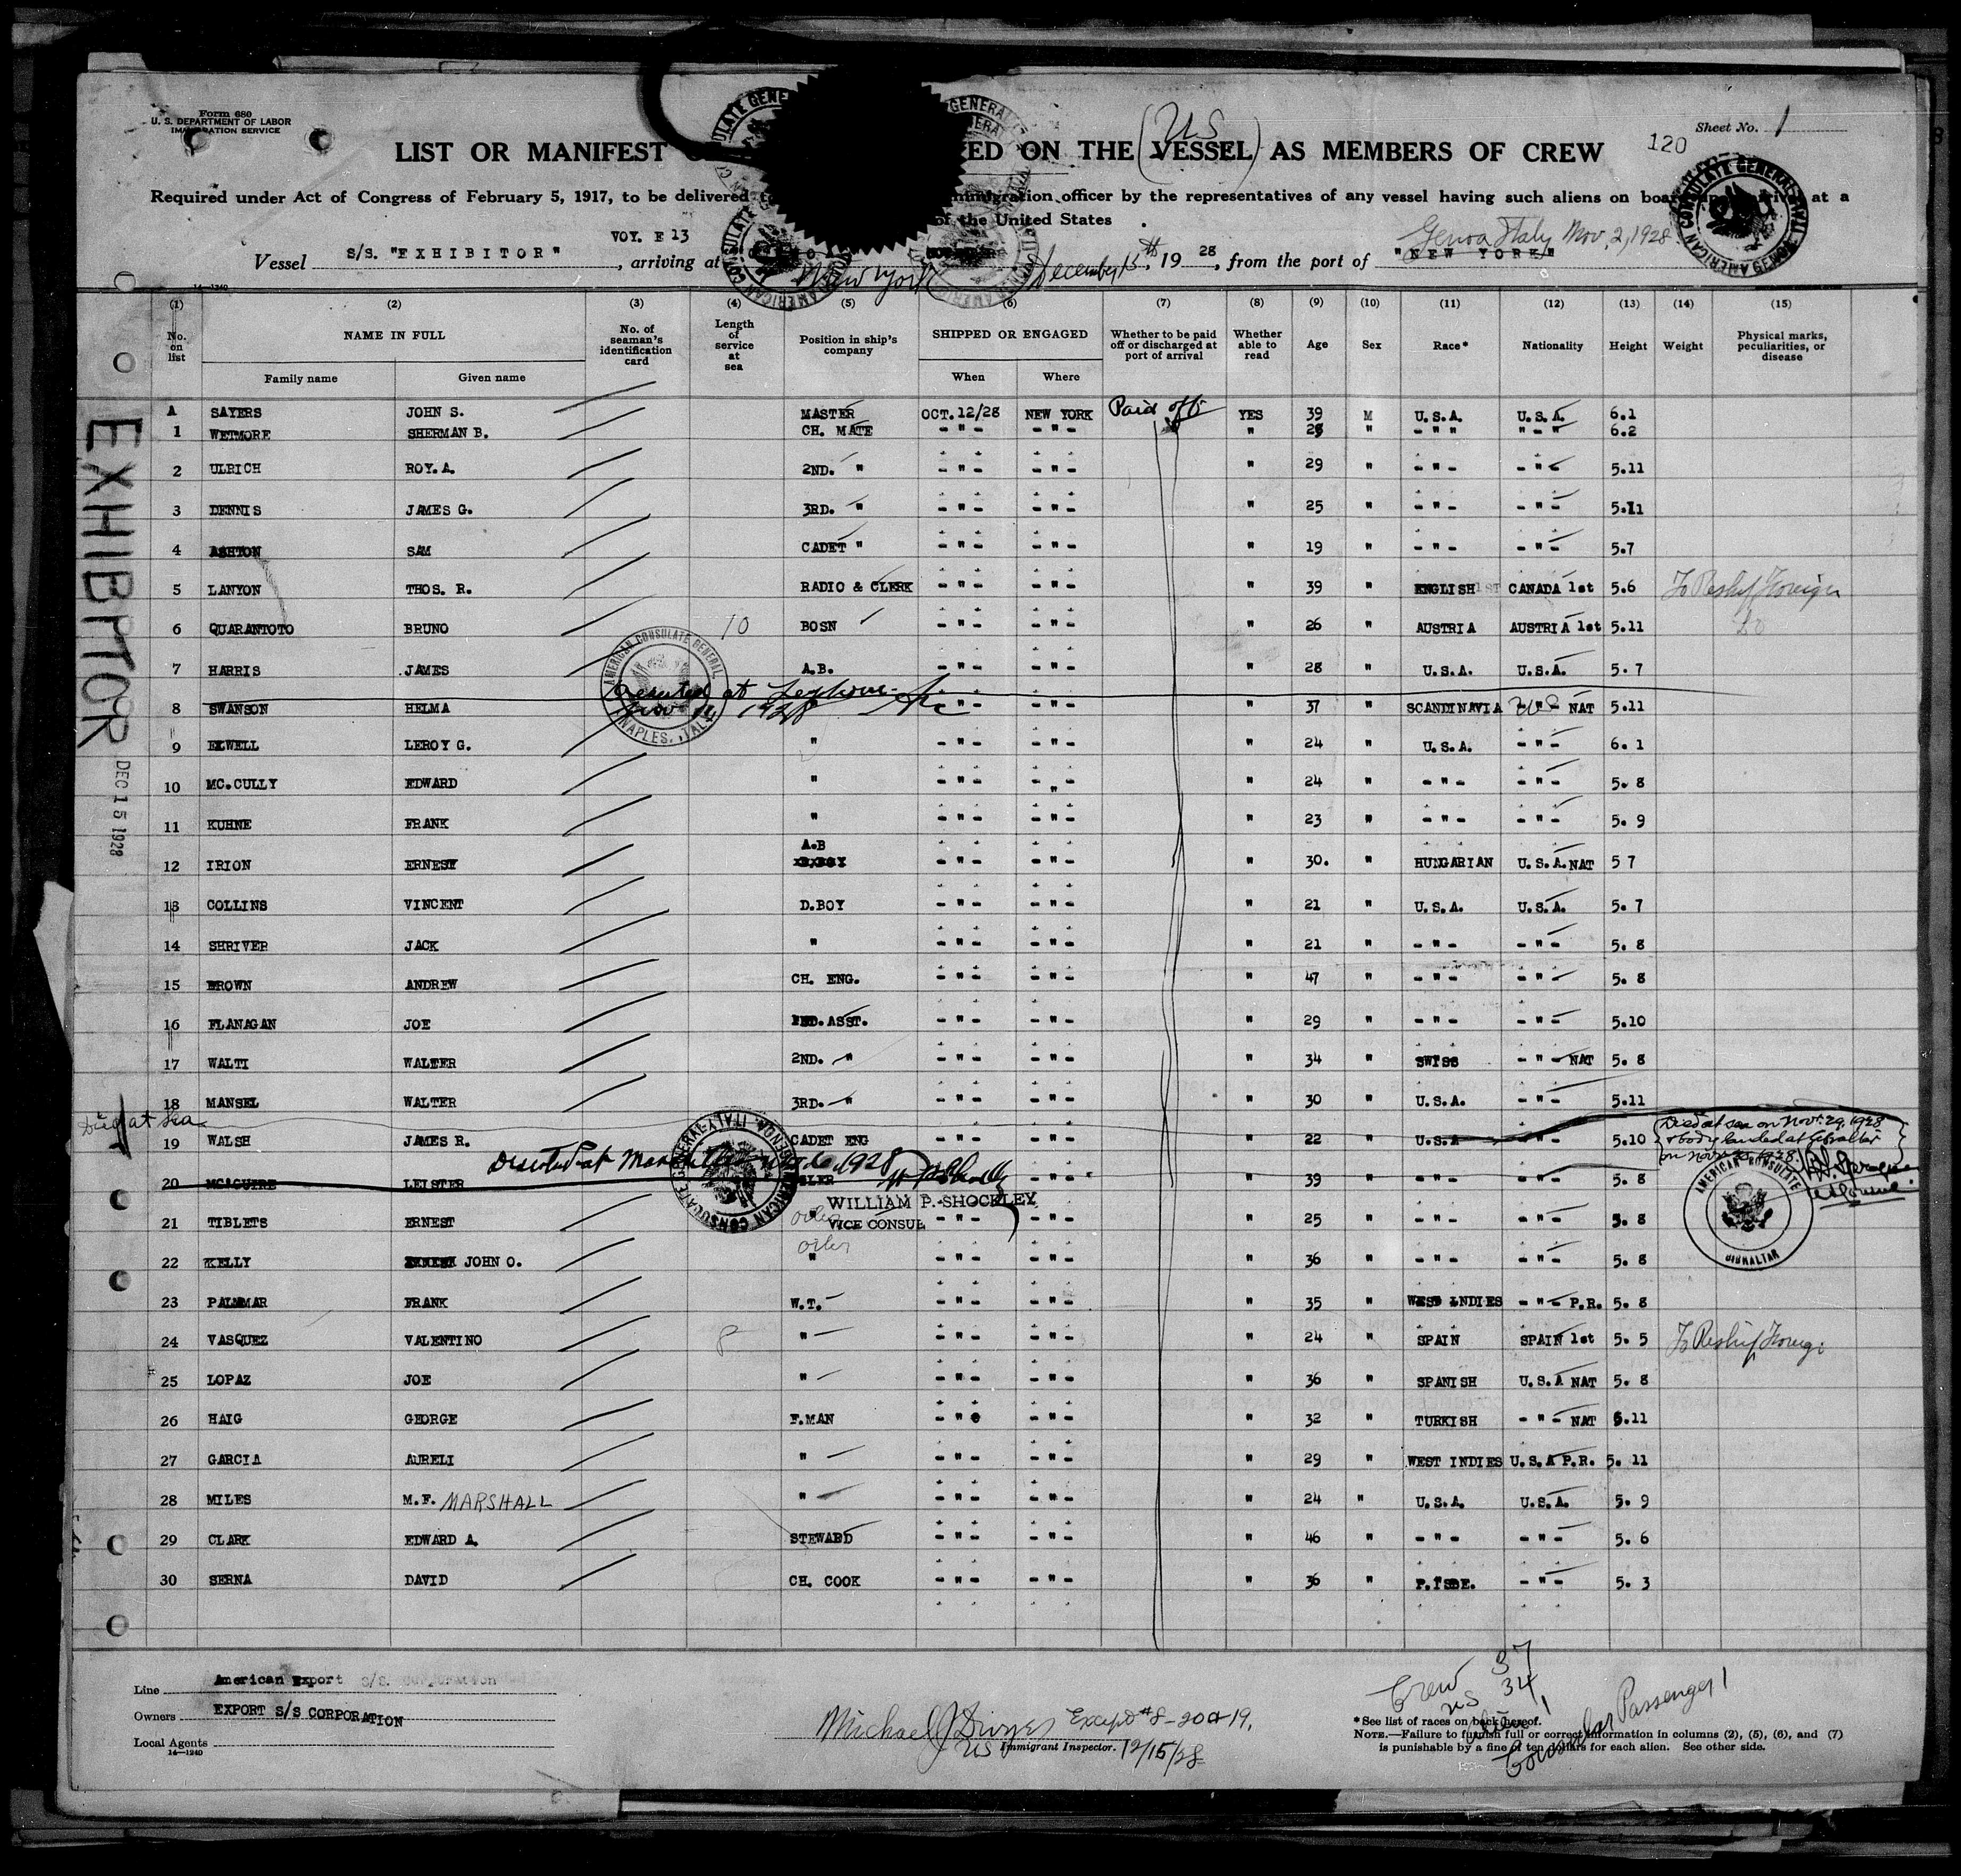 Form 680
U. S. DEPARTMENT OF LABOR
IMMIGRATION SERVICE
Sheet No. 1
120
US
LIST OR MANIFEST O ED ON THE (VESSEL) AS MEMBERS OF CREW
Required under Act of Congress of February 5, 1917, to be delivered t immigration officer by the representatives of any vessel having such aliens on board upon arrival at a
of the United States
VOY. E 13
Genoa Italy Nov, 2, 1928
Vessel S/S. "EXHIBITOR", arriving at New York December 15th, 1928, from the port of "NEW YORK"
14-1240
(1) (2) (3) (4) (5) (6) (7) (8) (9) (10) (11) (12) (13) (14) (15)
No. on list NAME IN FULL No. of seaman's identification card Length of service at sea Position in ship's company SHIPPED OR ENGAGED Whether to be paid off or discharged at port of arrival Whether able to read Age Sex Race* Nationality Height Weight Physical marks, peculiarities, or disease
Family name Given name When Where
A SAYERS JOHN S. MASTER OCT. 12/28 NEW YORK Paid off YES 39 M U.S.A. U.S.A. 6.1
1 WETMORE SHERMAN B. CH. MATE - " - - " - " 28 " - " " " - " 6.2
2 ULRICH ROY. A. 2ND. " - " - - " - " 29 " - " - - " - 5.11
3 DENNIS JAMES G. 3RD. " - " - - " - " 25 " - " - - " - 5.11
4 ASHTON SAM CADET " - " - - " - " 19 " - " - - " - 5.7
5 LANYON THOS. R. RADIO & CLERK - " - - " - " 39 " ENGLISH 1ST CANADA 1st 5.6 To Reship Foreign
6 QUARANTOTO BRUNO 10 BOSN - " - - " - " 26 " AUSTRIA AUSTRIA 1st 5.11 Do
7 HARRIS JAMES A.B. - " - - " - " 28 " U.S.A. U.S.A. 5.7
Deserted at Leghorn
Nov 14 1928
8 SWANSON HELMA - " - - " - " 37 " SCANDINAVIA US - " - NAT 5.11
9 ELWELL LEROY G. " - " - - " - " 24 " U.S.A. - " - 6.1
10 MC.CULLY EDWARD " - " - - " - " 24 " - " - - " - 5.8
11 KUHNE FRANK " - " - - " - " 23 " - " - - " - 5.9
A.B
12 IRION ERNEST - " - - " - " 30. " HUNGARIAN U.S.A. NAT 5 7
13 COLLINS VINCENT D.BOY - " - - " - " 21 " U.S.A. U.S.A. 5.7
14 SHRIVER JACK " - " - - " - " 21 " - " - - " - 5.8
15 BROWN ANDREW CH. ENG. - " - - " - " 47 " - " - - " - 5.8
16 FLANAGAN JOE ASST. - " - - " - " 29 " - " - - " - 5.10
17 WALTI WALTER 2ND. " - " - - " - " 34 " SWISS - " - NAT 5.8
18 MANSEL WALTER 3RD. " - " - - " - " 30 " U.S.A. - " - 5.11
Died at sea
19 WALSH JAMES R. CADET ENG - " - - " - " 22 " U.S.A - " - 5.10 Died at sea on Nov. 29, 1928 & body landed at Gibraltar on Nov. 1928.
Deserted at 1928
20 MCAGUIRE LEISTER OILER - " - - " - " 39 " - " - - " - 5.8
WILLIAM P. SHOCKLEY
VICE CONSUL
21 TIBLETS ERNEST oiler - " - - " - " 25 " - " - - " - 5.8
oiler
22 KELLY JOHN O. " - " - - " - " 36 " - " - - " - 5.8
23 PALMAR FRANK W.T. - " - - " - " 35 " WEST INDIES - " - P.R. 5.8
24 VASQUEZ VALENTINO 8 " - " - - " - " 24 " SPAIN SPAIN 1st 5.5 To Reship Foreign
25 LOPAZ JOE " - " - - " - " 36 " SPANISH U.S.A NAT 5.8
26 HAIG GEORGE F.MAN - " - - " - " 32 " TURKISH - " - NAT 5.11
27 GARCIA AURELI " - " - - " - " 29 " WEST INDIES U.S.A P.R. 5.11
28 MILES M.F. MARSHALL " - " - - " - " 24 " U.S.A. U.S.A. 5.9
29 CLARK EDWARD A. STEWARD - " - - " - " 46 " - " - - " - 5.6
30 SERNA DAVID CH. COOK - " - - " - " 36 " - " - 5.3
EXHIBITOR
DEC 15 1928
AMERICAN CONSULATE GENERAL
NAPLES, ITALY
AMERICAN CONSULATE GENERAL
GENOA, ITALY
AMERICAN CONSULATE
GIBRALTAR
Line American Export S/S. Corporation
Owners EXPORT S/S CORPORATION
Local Agents
14-1240
Michael J Dwyer Except #8-20 & 19.
US Immigrant Inspector. 12/15/28
Crew 37
US 34
Alien 1
Consular Passenger 1
*See list of races on back hereof.
NOTE.—Failure to furnish full or correct information in columns (2), (5), (6), and (7)
is punishable by a fine of ten dollars for each alien. See other side.